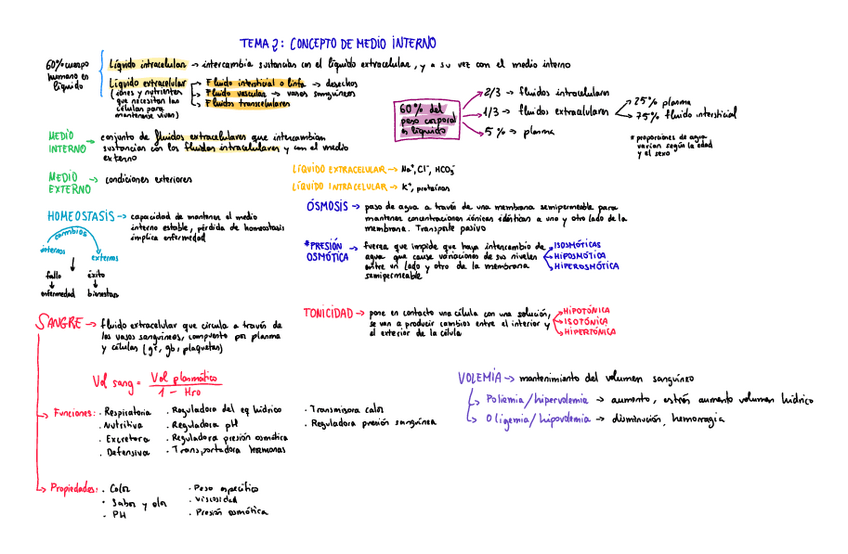 TEMA 2: CONCEPTO DE MEDIO INTERNO
60% cuerpo
humano es
líquido
Líquido intracelular → intercambia sustancias con el líquido extracelular, y a su vez con el medio interno
Líquido extracelular
(iones y nutrientes
que necesitan las
células para
mantenerse vivas)
Fluido intersticial o linfa → desechos
Fluido vascular → vasos sanguíneos
Fluidos transcelulares
60% del
peso corporal
es líquido
2/3 → fluidos intracelulares
1/3 → fluidos extracelulares
25% plasma
75% fluido intersticial
5% → plasma
* proporciones de agua
varían según la edad
y el sexo
MEDIO
INTERNO → conjunto de fluidos extracelulares que intercambian
sustancias con los fluidos intracelulares y con el medio
externo
MEDIO
EXTERNO → condiciones exteriores
LÍQUIDO EXTRACELULAR → Na+, Cl-, HCO3-
LÍQUIDO INTRACELULAR → K+, proteínas
HOMEOSTASIS → capacidad de mantener el medio
interno estable, pérdida de homeostasis
implica enfermedad
cambios
internos
externos
fallo
éxito
enfermedad
bienestar
ÓSMOSIS → paso de agua a través de una membrana semipermeable para
mantener concentraciones iónicas idénticas a uno y otro lado de la
membrana. Transporte pasivo
*PRESIÓN
OSMÓTICA → fuerza que impide que haya intercambio de
agua que cause variaciones de sus niveles
entre un lado y otro de la membrana
semipermeable
ISOSMÓTICAS
HIPOSMÓTICA
HIPEROSMÓTICA
SANGRE → fluido extracelular que circula a través de
los vasos sanguíneos, compuesto por plasma
y células (gr, gb, plaquetas)
TONICIDAD → pone en contacto una célula con una solución,
se van a producir cambios entre el interior y
el exterior de la célula
HIPOTÓNICA
ISOTÓNICA
HIPERTÓNICA
Vol sang = Vol plasmático
1 - Hto
VOLEMIA → mantenimiento del volumen sanguíneo
Poliemia/hipervolemia → aumento, estrés aumento volumen hídrico
Oligemia/hipovolemia → disminución, hemorragia
Funciones:
· Respiratoria
· Nutritiva
· Excretora
· Defensiva
· Reguladora del eq hídrico
· Reguladora pH
· Reguladora presión osmótica
· Transportadora hormonas
· Transmisora calor
· Reguladora presión sanguínea
Propiedades:
· Color
· Sabor y olor
· PH
· Peso específico
· Viscosidad
· Presión osmótica